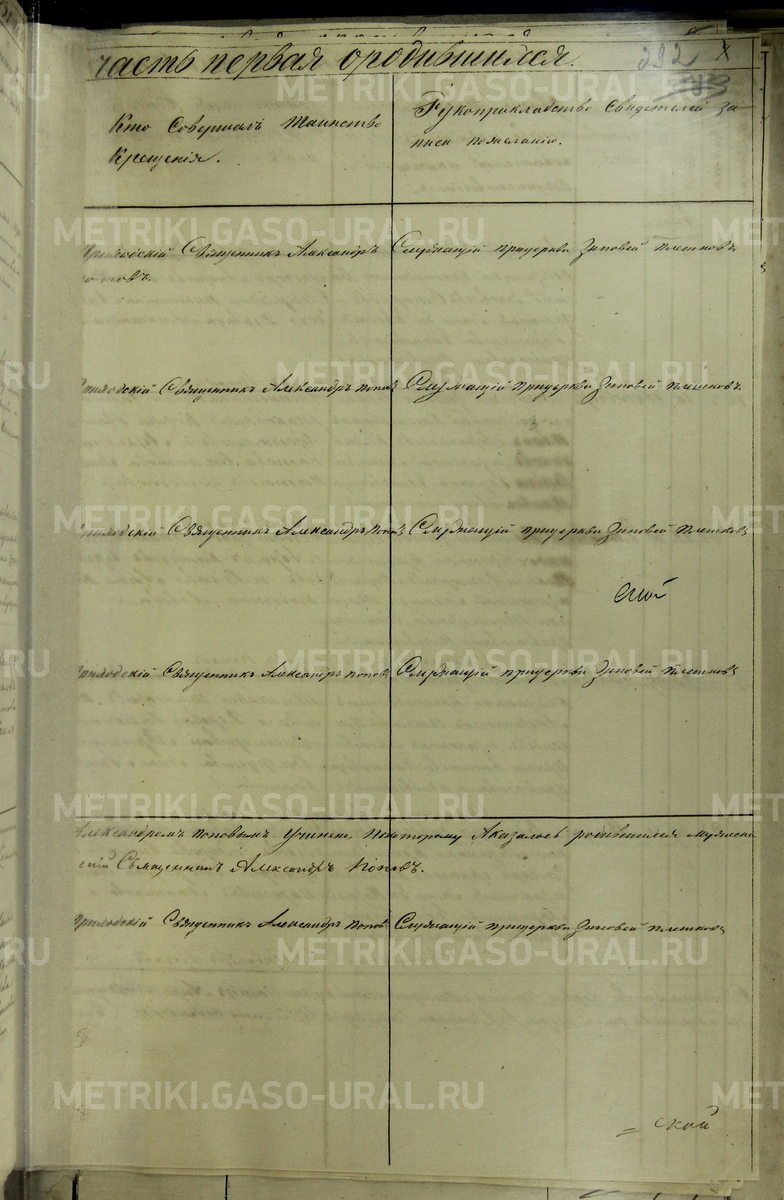 часть первая ородившихся.
292 x
Кто Совершалъ Таинство
Крещенія.
Рукоприкладство Свидетелей за-
писи пожеланію.
Приходскій Священникъ Александръ
Поповъ.
Служащій прицеркви Зиновей Плешковъ.
Приходскій Священникъ Александръ Поповъ
Служащій прицеркви Зиновей Плешковъ.
Приходскій Священникъ Александръ Поповъ
Служащій прицеркви Зиновей Плешковъ
ской
Приходскій Священникъ Александръ Поповъ
Служащій прицеркви Зиновей Плешковъ
Александромъ Поповымъ Учинено, Покоторому Аказалось родившихся
Священникъ Александръ Поповъ.
Приходскій Священникъ Александръ Поповъ
Служащій прицеркви Зиновей Плешковъ
= ской
METRIKI.GASO-URAL.RU